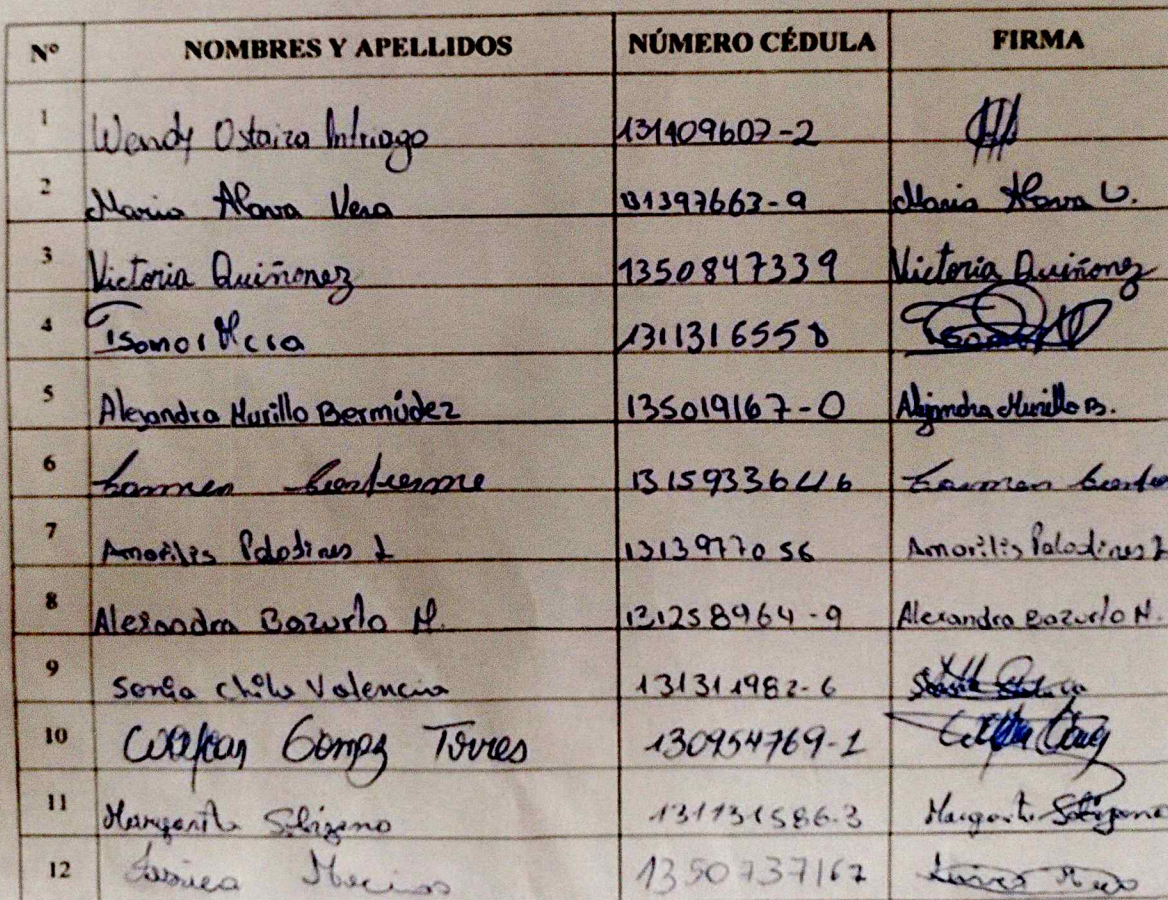 N° NOMBRES Y APELLIDOS NÚMERO CÉDULA FIRMA
1 Wendy Ostaiza Intriago 131409607-2
2 Maria Alava Vera 131397663-9 Maria Alava V.
3 Victoria Quiñonez 1350847339 Victoria Quiñonez
4 Mera 1311316558
5 Alejandra Murillo Bermúdez 135019167-0 Alejandra Murillo B.
6 Carmen 1315933646 Carmen
7 Amarilis Paladines L 1313977056 Amarilis Paladines L
8 Alexandra Bazurto M. 131258964-9 Alexandra Bazurto M.
9 Sonia Chila Valencia 131311982-6
10 Gomez Torres 130954769-1
11 Margarita 131131586-3 Margarita
12 Macias 1350737167